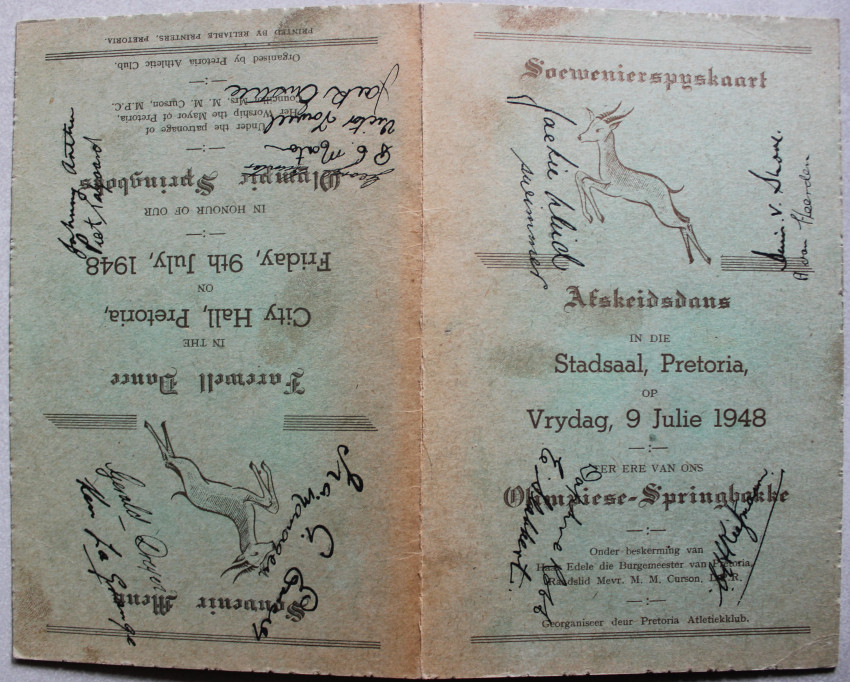 Soewenierspyskaart
Afskeidsdans
IN DIE
Stadsaal, Pretoria,
OP
Vrydag, 9 Julie 1948
TER ERE VAN ONS
Olimpiese-Springbokke
Onder beskerming van
Haar Edele die Burgemeester van Pretoria,
Raadslid Mevr. M. M. Curson, L.P.R.
Georganiseer deur Pretoria Atletiekklub.
Jackie
swimmer
Denis V. Shore.
van Heerden
Daphne
Souvenir
Menu
Farewell Dance
IN THE
City Hall, Pretoria,
ON
Friday, 9th July, 1948
IN HONOUR OF OUR
Olympic Springboks
Under the patronage of
Her Worship the Mayor of Pretoria,
Councillor Mrs. M. M. Curson, M.P.C.
Organised by Pretoria Athletic Club.
PRINTED BY RELIABLE PRINTERS, PRETORIA.
Ira G. Emery
manager
Gerald Dreyer
La Grange
Johnny Arthur
Piet Taljaard
Victor Toweel